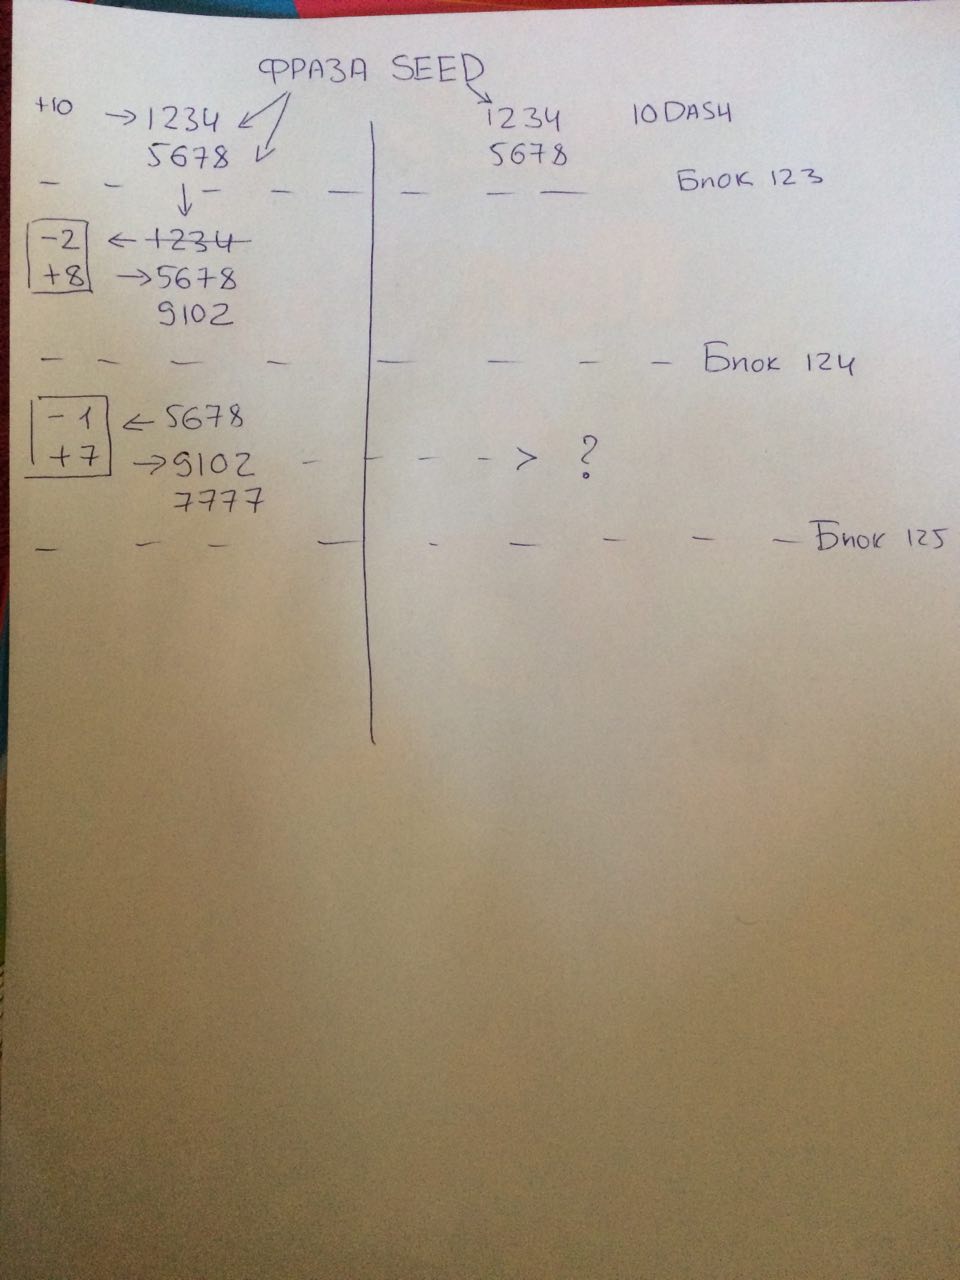 ФРАЗА SEED
+10 → 1234 1234 10 DASH
5678 5678
Блок 123
-2 ← 1234
+8 → 5678
9102
Блок 124
-1 ← 5678
+7 → 9102 - - - - > ?
7777
Блок 125